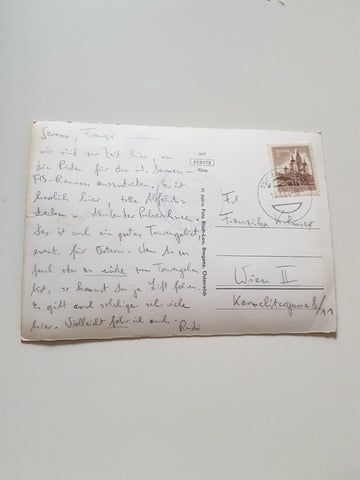 Servus, Franzi
wir sind zur Zeit hier, um
die Pisten für die int. Damen-
FIS-Rennen auszutreten. Es ist
herrlich hier, tolle Abfahrts-
strecken u. staubender Pulverschnee.
Das ist auch ein gutes Tourengebiet,
event. für Ostern. Wenn Du zu
faul oder zu müde zum Tourengehen
bist, so kannst Du ja Lift fahren.
Es gibt auch solchige sehr viele
hier. Vielleicht fahr ich auch.
Rudi
auf
PERUTZ
Film
75 Jahre Foto Risch-Lau, Bregenz, Österreich
Frl.
Franziska
Wien II
Karmelitergasse 8/11